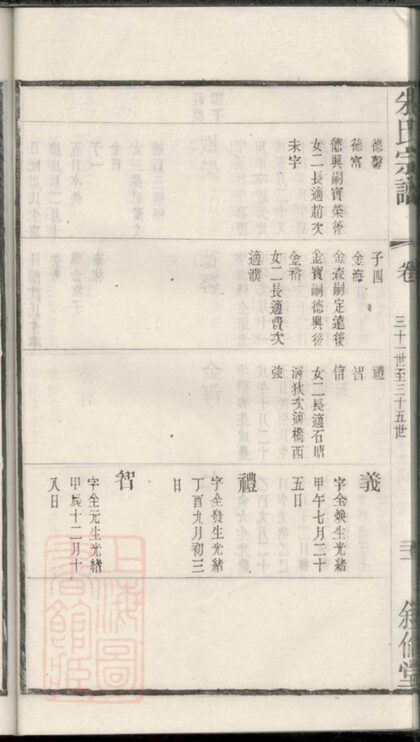 朱氏宗譜
卷
三十一世至三十五世
敘倫堂
德馨
德富
德興嗣寶榮後
女二長適趙次
未字
子四
金海
金森嗣定遠後
金寶嗣德興後
金裕
女二長適費次
適濮
禮
智
信
女二長適石塘
強
義
字金煥生光緒
甲午七月二十
五日
禮
字金發生光緒
丁酉九月初三
日
智
字金元生光緒
甲辰十二月十
八日
上海圖